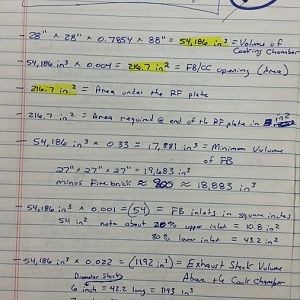 - 28" x 28" x 0.7854 x 88" = 54,186 in³ = Volume of
Cooking Chamber
- 54,186 in³ x 0.004 = 216.7 in² = FB/CC opening (Area)
- 216.7 in² = Area under the RF plate
- 216.7 in² = Area required @ end of the RF plate in in²
- 54,186 in³ x 0.33 = 17,881 in³ = Minimum Volume
of FB
27" x 27" x 27" = 19,683 in³
minus Firebrick ≈ 800 ≈ 18,883 in³
- 54,186 in³ x 0.001 = (54) = FB inlets in square inches
54 in² note about 20% upper inlet = 10.8 in²
80% lower inlet = 43.2 in²
- 54,186 in³ x 0.022 = (1192 in³) = Exhaust Stack Volume
Diameter Stacks Above the Cook Chamber
6 inch = 42.2 long = 1193 in³